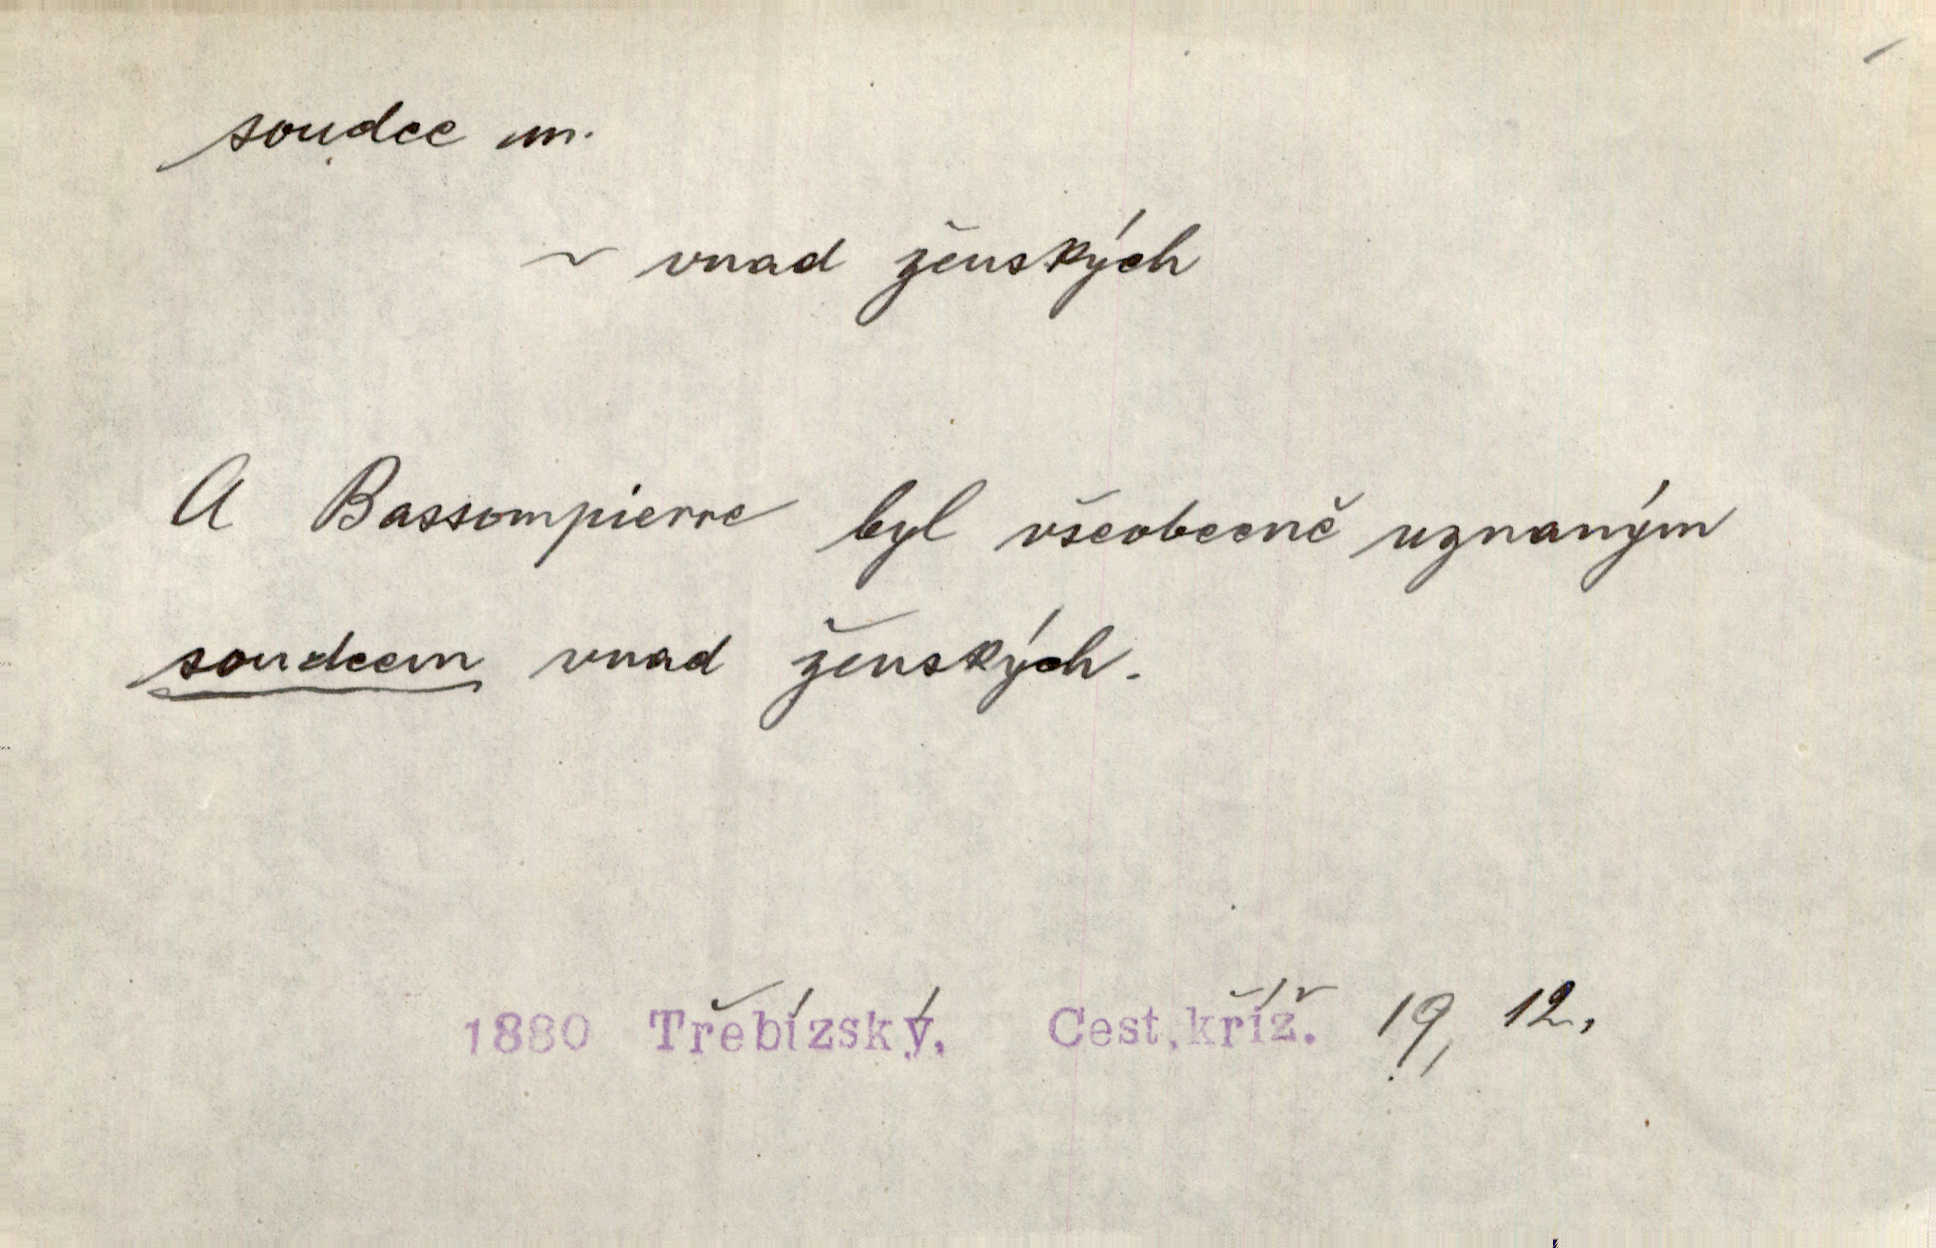 soudce m.
~ vnad ženských
A Bassompierre byl všeobecně uznaným
soudcem vnad ženských.
1880 Třebízský, Cest.kříž. 19, 12,